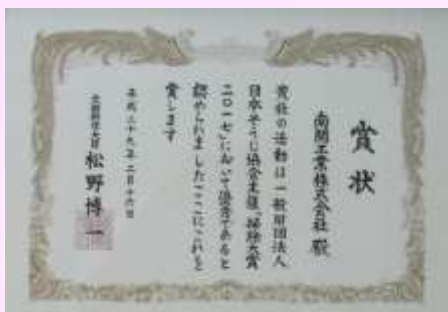 賞状
南開工業株式会社 殿
貴社の活動は一般財団法人
日本そうじ協会主催「掃除大賞
二〇一七」において優秀であると
認められましたここにこれを
賞します
平成二十九年二月十六日
文部科学大臣 松野博一